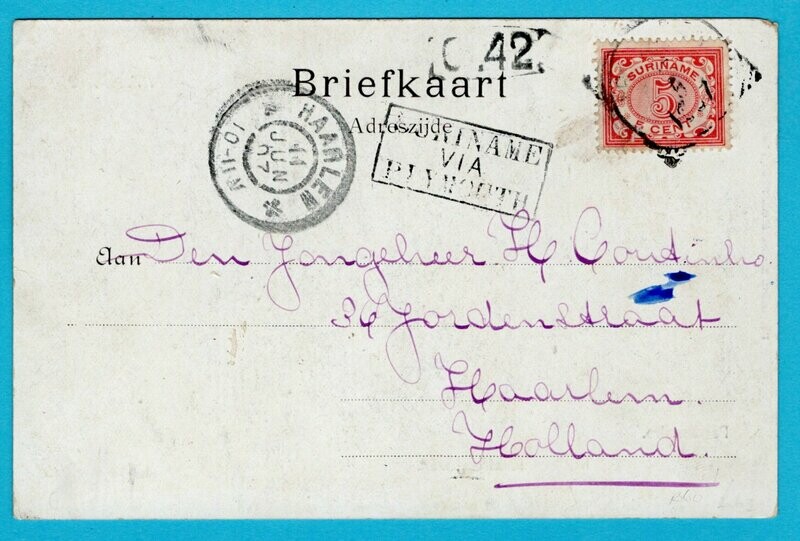 42
SURINAME
5
CENT
Briefkaart
Adreszijde
SURINAME
VIA
PLYMOUTH
HAARLEM
11
JUN
07
10-11V
Aan Den Jongeheer H Coutinho
36 Jordenstraat
Haarlem.
Holland.